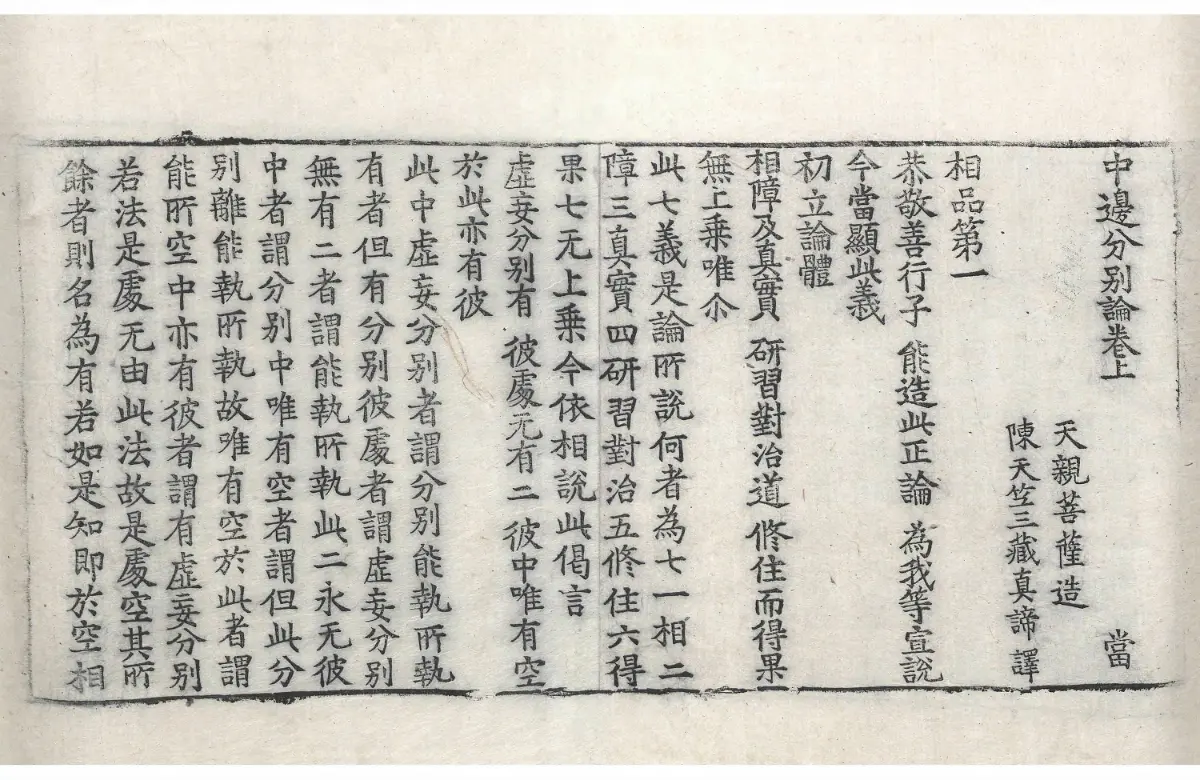 中邊分別論卷上 當
天親菩薩造
陳天竺三藏真諦譯
相品第一
恭敬善行子 能造此正論 為我等宣說
今當顯此義
初立論體
相障及真實 研習對治道 修住而得果
無上乘唯尒
此七義是論所說何者為七一相二
障三真實四研習對治五修住六得
果七无上乘今依相說此偈言
虛妄分別有 彼處无有二 彼中唯有空
於此亦有彼
此中虛妄分別者謂分別能執所執
有者但有分別彼處者謂虛妄分別
無有二者謂能執所執此二永无彼
中者謂分別中唯有空者謂但此分
別離能執所執故唯有空於此者謂
能所空中亦有彼者謂有虛妄分別
若法是處无由此法故是處空其所
餘者則名為有若如是知即於空相